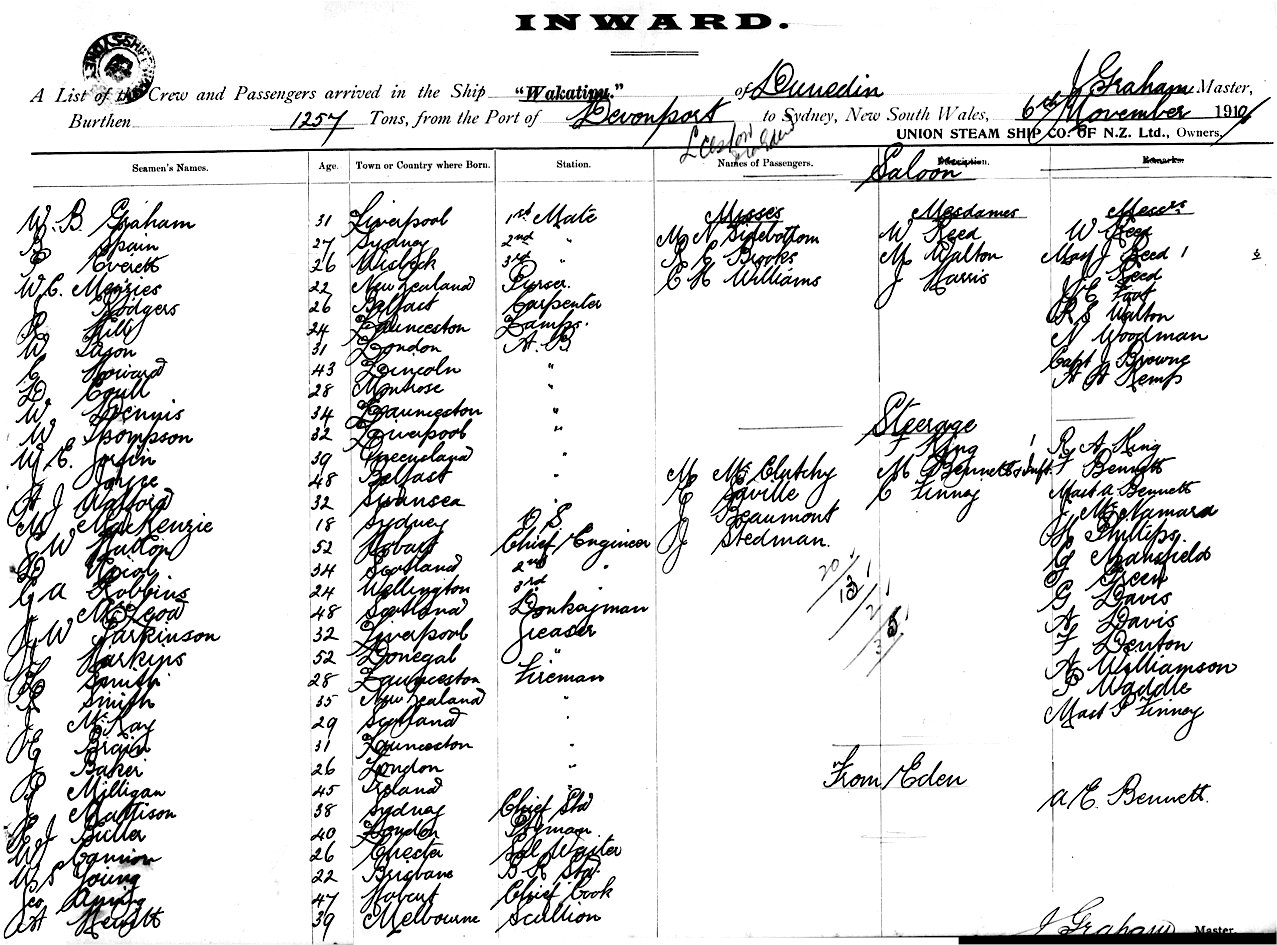 INWARD.
A List of the Crew and Passengers arrived in the Ship "Wakatipu." of Dunedin J Graham Master,
Burthen 1257 Tons, from the Port of Devonport to Sydney, New South Wales, 6th November 1910
UNION STEAM SHIP CO. OF N.Z. Ltd., Owners,
Seamen's Names. Age. Town or Country where Born. Station. Names of Passengers. Description. Remarks.
Saloon
Misses Mesdames Messrs
W. B. Graham 31 Liverpool 1st Mate M N Sidebottom W Reed W Reed
Spain 27 Sydney 2nd " R E Brooks M Walton Mast J Reed 1
E Everett 26 Wisbeck 3rd " E H Williams J Harris J Reed
W. C. Menzies 22 New Zealand Purser E Foot
J Rodgers 26 Belfast Carpenter R S Walton
R Hill 24 Launceston Lamps. N Woodman
W Eason 31 London A. B Capt J Browne
C Howard 43 Lincoln " A H Kemp
D Coull 28 Montrose
W. Dennis 34 Launceston "
Steerage
W Thompson 32 Liverpool " F King 1 R A King
W. E. 39 Queensland " M McClutchy M Bennett & Inft F Bennett
48 Belfast " E Saville C Finney Mast A Bennett
A J Walford 32 Swansea " Beaumont J McNamara
M MacKenzie 18 Sydney O S J Stedman. H Phillips.
W Hudon 52 Hobart Chief Engineer G Mansfield
D Nicol 34 Scotland 2nd " Green
G A Robbins 24 Wellington 3rd " G Davis
J McLeod 48 Scotland Donkeyman A Davis
J W Parkinson 32 Liverpool Greaser F Denton
Harkins 52 Donegal " A Williamson
Smith 28 Launceston Fireman P Waddle
R Smith 35 New Zealand " Mast P Finney
J McKay 29 Scotland "
E Brain 31 Launceston "
J Baker 26 London "
From Eden
P Milligan 45 Ireland A E. Bennett.
J Mattison 38 Sydney Chief Std
E J Butler 40 London P'tyman
W Cannon 26 Chester Sal Waiter
W S Young 22 Brisbane B. R Std.
Geo Anning 47 Hobart Chief Cook
Hewitt 39 Melbourne Scullion
J Graham Master.